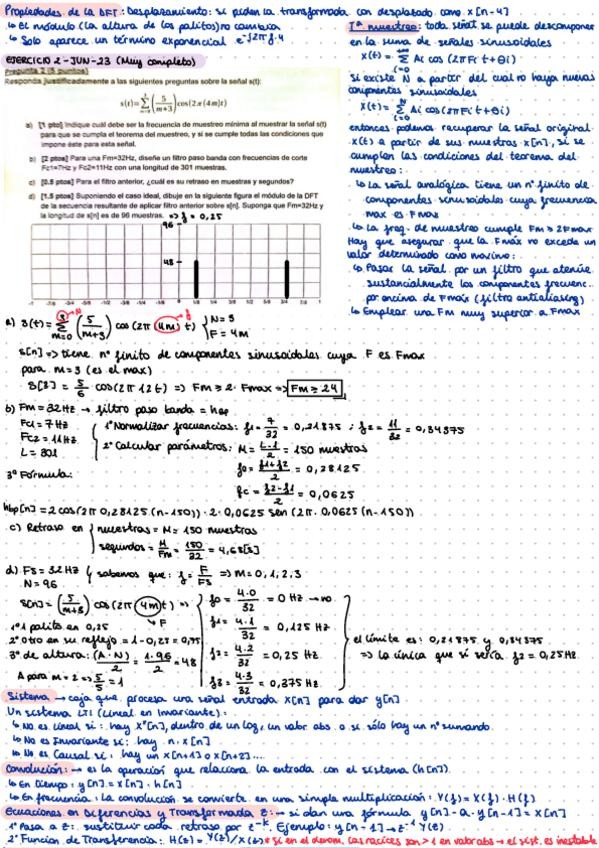 Propiedades de la DFT: Desplazamiento: si piden la transformada con desplazado como x[n-4]
↳ El módulo (la altura de los palitos) no cambia
↳ Solo aparece un término exponencial e^-j2πf·4
EJERCICIO 2-JUN-23 (Muy completo)
Pregunta 2 (5 puntos)
Responda justificadamente a las siguientes preguntas sobre la señal s(t):
a) [1 pto] Indique cuál debe ser la frecuencia de muestreo mínima al muestrar la señal s(t)
para que se cumpla el teorema del muestreo, y si se cumple todas las condiciones que
impone éste para esta señal.
b) [2 ptos] Para una Fm=32Hz, diseñe un filtro paso banda con frecuencias de corte
Fc1=7Hz y Fc2=11Hz con una longitud de 301 muestras.
c) [0.5 ptos] Para el filtro anterior, ¿cuál es su retraso en muestras y segundos?
d) [1.5 ptos] Suponiendo el caso ideal, dibuje en la siguiente figura el módulo de la DFT
de la secuencia resultante de aplicar filtro anterior sobre s[n]. Suponga que Fm=32Hz y
la longitud de s[n] es de 96 muestras. => f = 0,25
96
48
-1 -7/8 -3/4 -5/8 -1/2 -3/8 -1/4 -1/8 0 1/8 1/4 3/8 1/2 5/8 3/4 7/8 1
Tª muestreo: toda señal se puede descomponer
en la suma de señales sinusoidales
x(t) = ∑ Ai cos (2πFi t + θi)
i=0
Si existe N a partir del cual no haya nuevas
componentes sinusoidales
x(t) = ∑ Ai cos (2πFi t + θi)
i=0
entonces podemos recuperar la señal original
x(t) a partir de sus muestras x[n], si se
cumplen las condiciones del teorema del
muestreo:
↳ La señal analógica tiene un nº finito de
componentes sinusoidales cuya frecuencia
max es Fmax
↳ La freq. de muestreo cumple Fm ≥ 2Fmax
Hay que asegurar que la Fmáx no exceda un
valor determinado como máximo:
↳ Pasar la señal por un filtro que atenúe
sustancialmente los componentes frecuenc.
por encima de Fmáx (filtro antialiasing)
↳ Emplear una Fm muy superior a Fmax
a) s(t) = ∑ (5/(m+3)) cos (2π (4m) t) { N=3
m=0 F = 4m
s[n] => tiene nº finito de componentes sinusoidales cuya F es Fmax
para m=3 (es el max)
s[3] = 5/6 · cos(2π 12t) => Fm ≥ 2·Fmax => Fm ≥ 24
b) Fm = 32Hz → filtro paso banda = hbp
Fc1 = 7Hz
Fc2 = 11Hz
L = 301
1º Normalizar frecuencias: f1 = 7/32 = 0,21875 ; f2 = 11/32 = 0,34375
2º Calcular parámetros: M = (L-1)/2 = 150 muestras
3º Fórmula: f0 = (f1+f2)/2 = 0,28125
fc = (f2-f1)/2 = 0,0625
hbp[n] = 2cos(2π 0,28125 (n-150)) · 2·0,0625 sen(2π·0,0625(n-150))
c) Retraso en { muestras = M = 150 muestras
segundos = M/Fm = 150/32 = 4,68[s]
d) Fs = 32Hz y sabemos que: f = F/Fs => M = 0,1,2,3
N = 96
s[n] = (5/(m+3)) cos(2π (4m) t) =>
↳ F
f0 = 4·0/32 = 0 Hz → no
f1 = 4·1/32 = 0,125 Hz
f2 = 4·2/32 = 0,25 Hz
f3 = 4·3/32 = 0,375 Hz
el límite es: 0,21875 y 0,34375
=> la única que sí sería f2 = 0,25Hz
1º 1 palito en 0,25
2º Otro en su reflejo = 1-0,25 = 0,75
3º de altura: (A·N)/2 = 1·96/2 = 48
A para m=2 => 5/5 = 1
Sistema → caja que procesa una señal entrada x[n] para dar y[n]
Un sistema LTI (Lineal en Invariante):
↳ No es Lineal si: hay x²[n], dentro de un log, un valor abs. o si sólo hay un nº sumando
↳ No es Invariante si: hay n·x[n]
↳ No es Causal si: hay un x[n+1] o x[n+2]....
Convolución: → es la operación que relaciona la entrada con el sistema (h[n])
↳ En tiempo: y[n] = x[n] · h[n]
↳ En frecuencia: La convolución se convierte en una simple multiplicación: Y(f) = X(f) · H(f)
Ecuaciones en Diferencias y Transformada Z: → si dan una fórmula y[n]-a·y[n-1] = x[n]
1º Pasa a Z: sustituir cada retraso por z^-k. Ejemplo: y[n-1] → z^-1 Y(z)
2º Función de Transferencia: H(z) = Y(z)/X(z) * si en el denom. las raíces son >1 en valor abs → el sist. es inestable